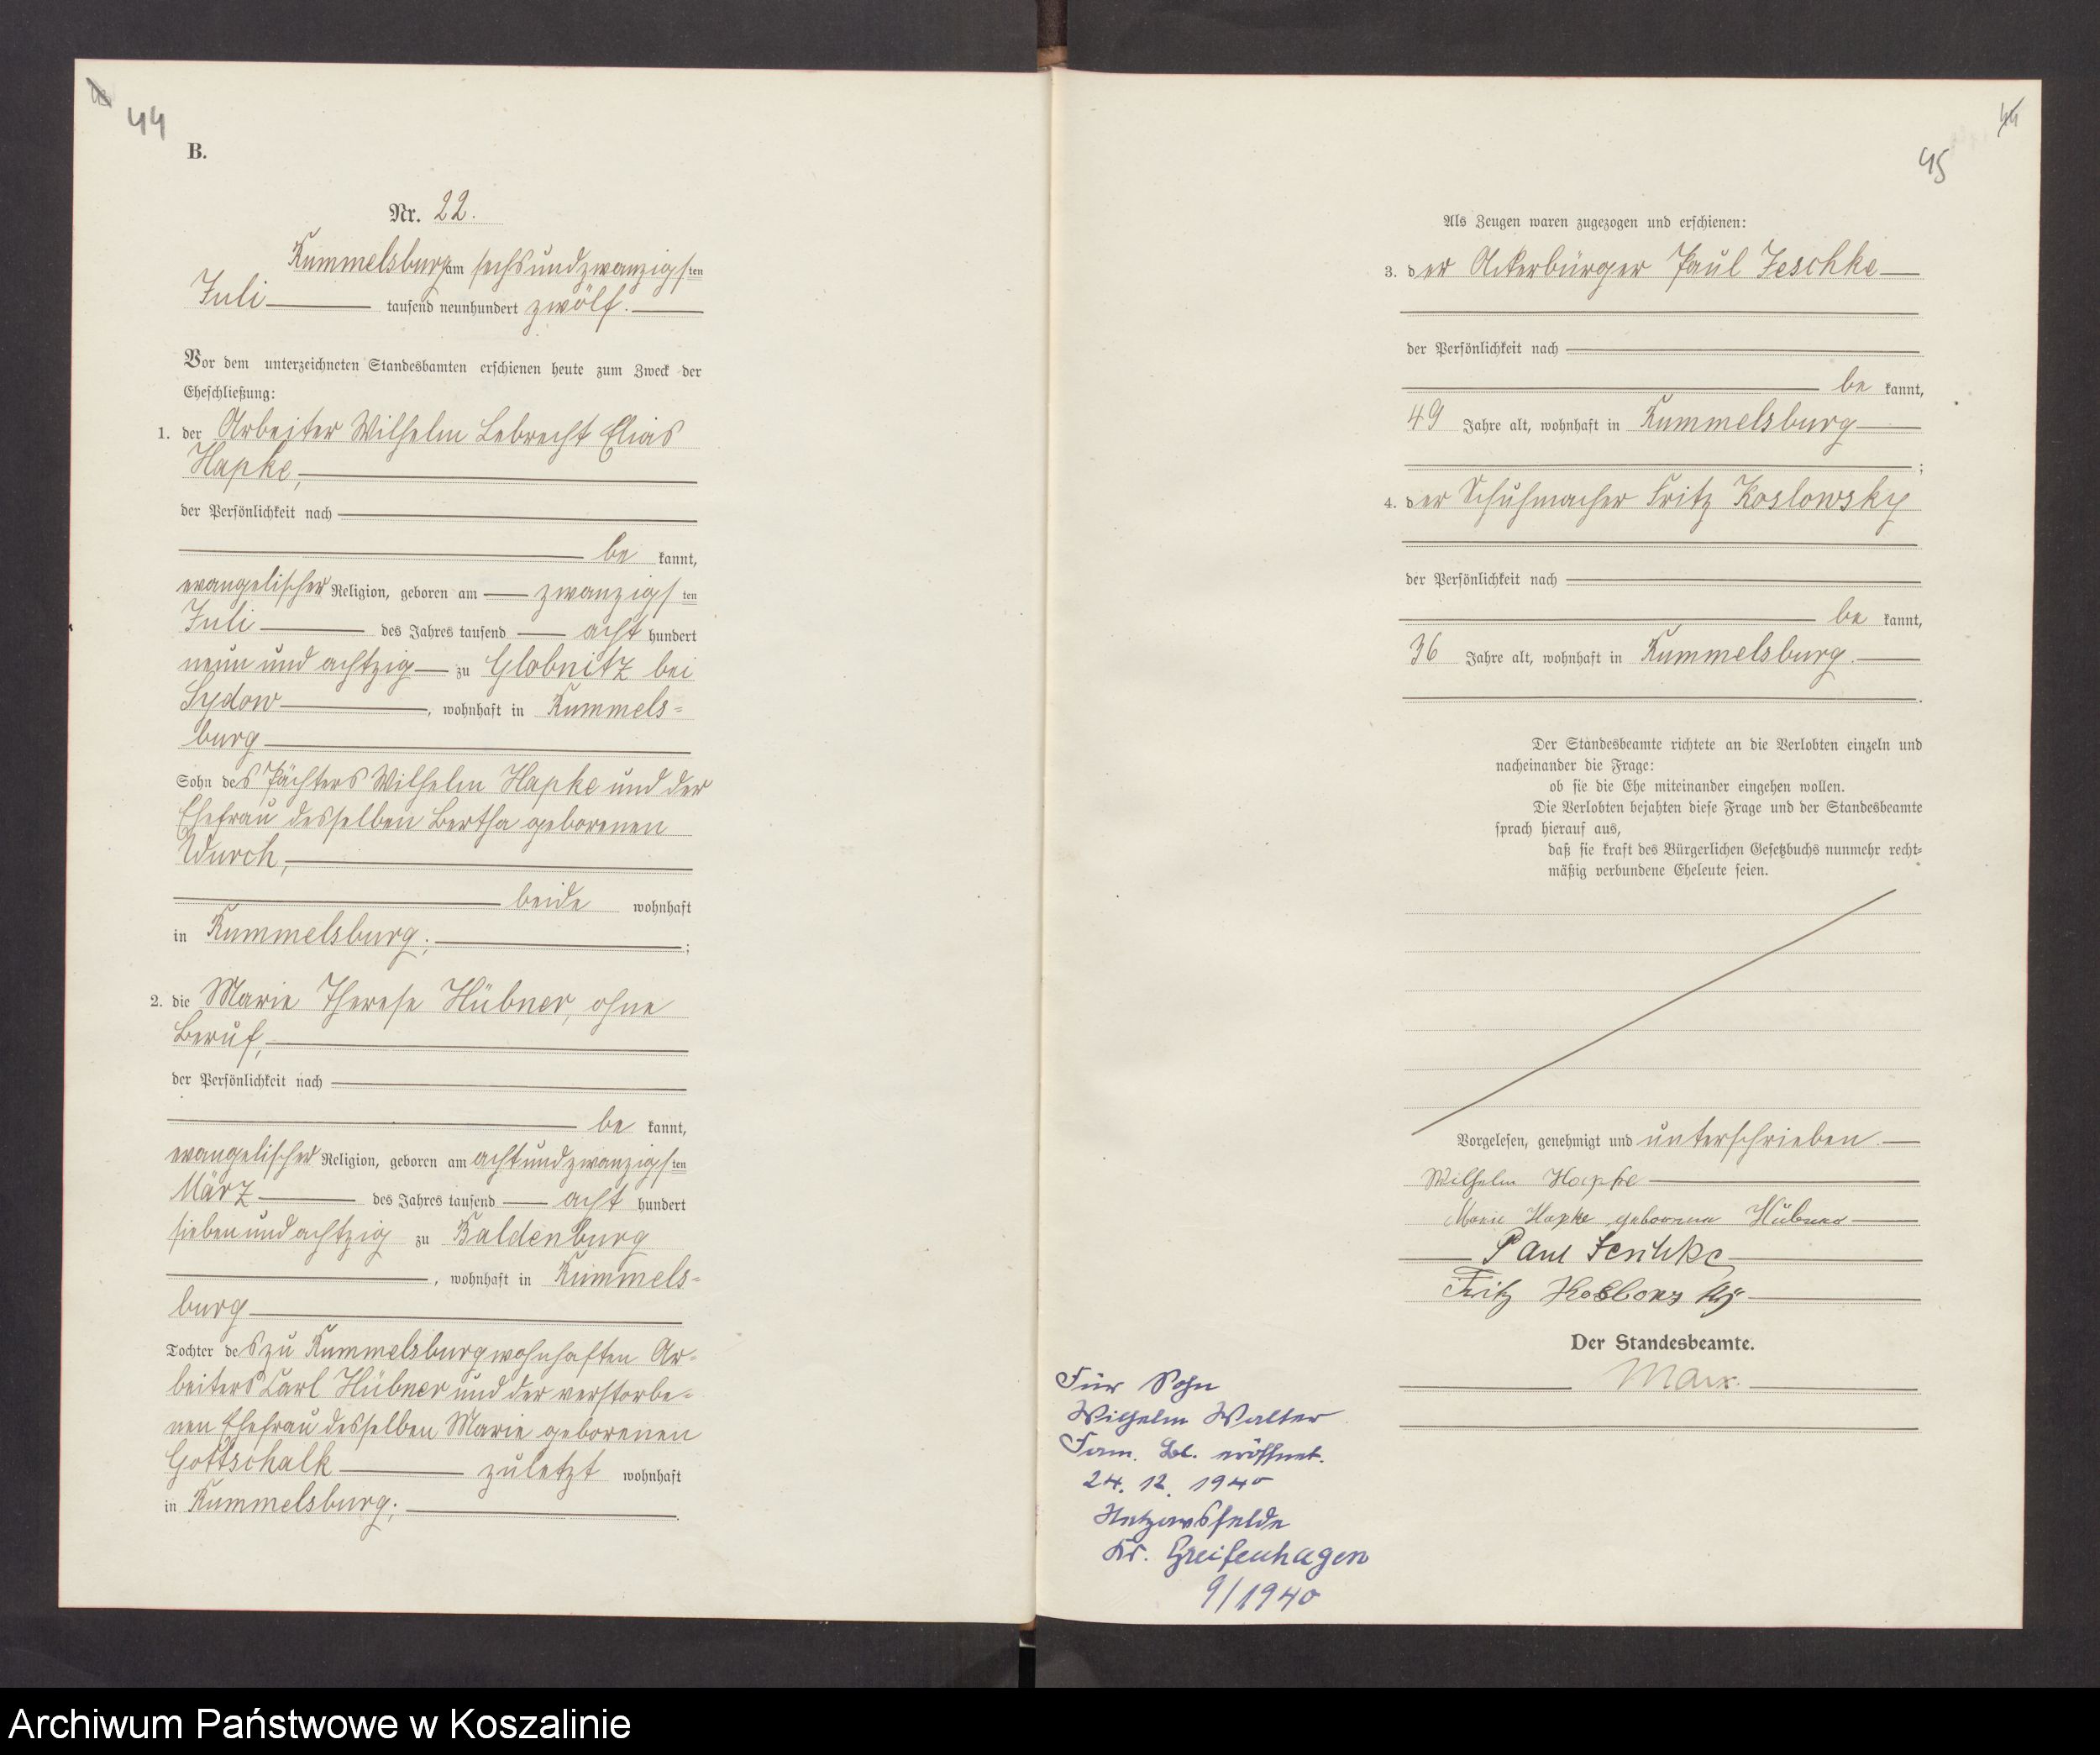 44
B.
Nr. 22.
Rummelsburg am sechsundzwanzigsten
Juli tausend neunhundert zwölf.
Vor dem unterzeichneten Standesbamten erschienen heute zum Zweck der
Eheschließung:
1. der Arbeiter Wilhelm Lebrecht Elias
Hapke,
der Persönlichkeit nach
be kannt,
evangelischer Religion, geboren am zwanzigsten
Juli des Jahres tausend acht hundert
neun und achtzig zu Globnitz bei
Sydow, wohnhaft in Rummels=
burg
Sohn des Pächters Wilhelm Hapke und der
Ehefrau desselben Bertha geborenen
Wurch,
beide wohnhaft
in Rummelsburg;
2. die Marie Therese Hübner, ohne
Beruf,
der Persönlichkeit nach
be kannt,
evangelischer Religion, geboren am achtundzwanzigsten
März des Jahres tausend acht hundert
siebenundachtzig zu Baldenburg
, wohnhaft in Rummels=
burg
Tochter des zu Rummelsburg wohnhaften Ar=
beiters Carl Hübner und der verstorbe=
nen Ehefrau desselben Marie geborenen
Gottschalk zuletzt wohnhaft
in Rummelsburg.
44
45
Als Zeugen waren zugezogen und erschienen:
3. der Ackerbürger Paul Jeschke
der Persönlichkeit nach
be kannt,
49 Jahre alt, wohnhaft in Rummelsburg
;
4. der Schuhmacher Fritz Koslowsky
der Persönlichkeit nach
be kannt,
36 Jahre alt, wohnhaft in Rummelsburg.
Der Standesbeamte richtete an die Verlobten einzeln und
nacheinander die Frage:
ob sie die Ehe miteinander eingehen wollen.
Die Verlobten bejahten diese Frage und der Standesbeamte
sprach hierauf aus,
daß sie kraft des Bürgerlichen Gesetzbuchs nunmehr recht=
mäßig verbundene Eheleute seien.
Vorgelesen, genehmigt und unterschrieben.
Wilhelm Hapke
Marie Hapke geborenen Hübner
Paul Jeschke
Fritz Koslowsky
Der Standesbeamte.
Marx.
Für Sohn
Wilhelm Walter
Fam. Bl. eröffnet.
24. 12. 1940
Kr. Greifenhagen
9/1940
Archiwum Państwowe w Koszalinie